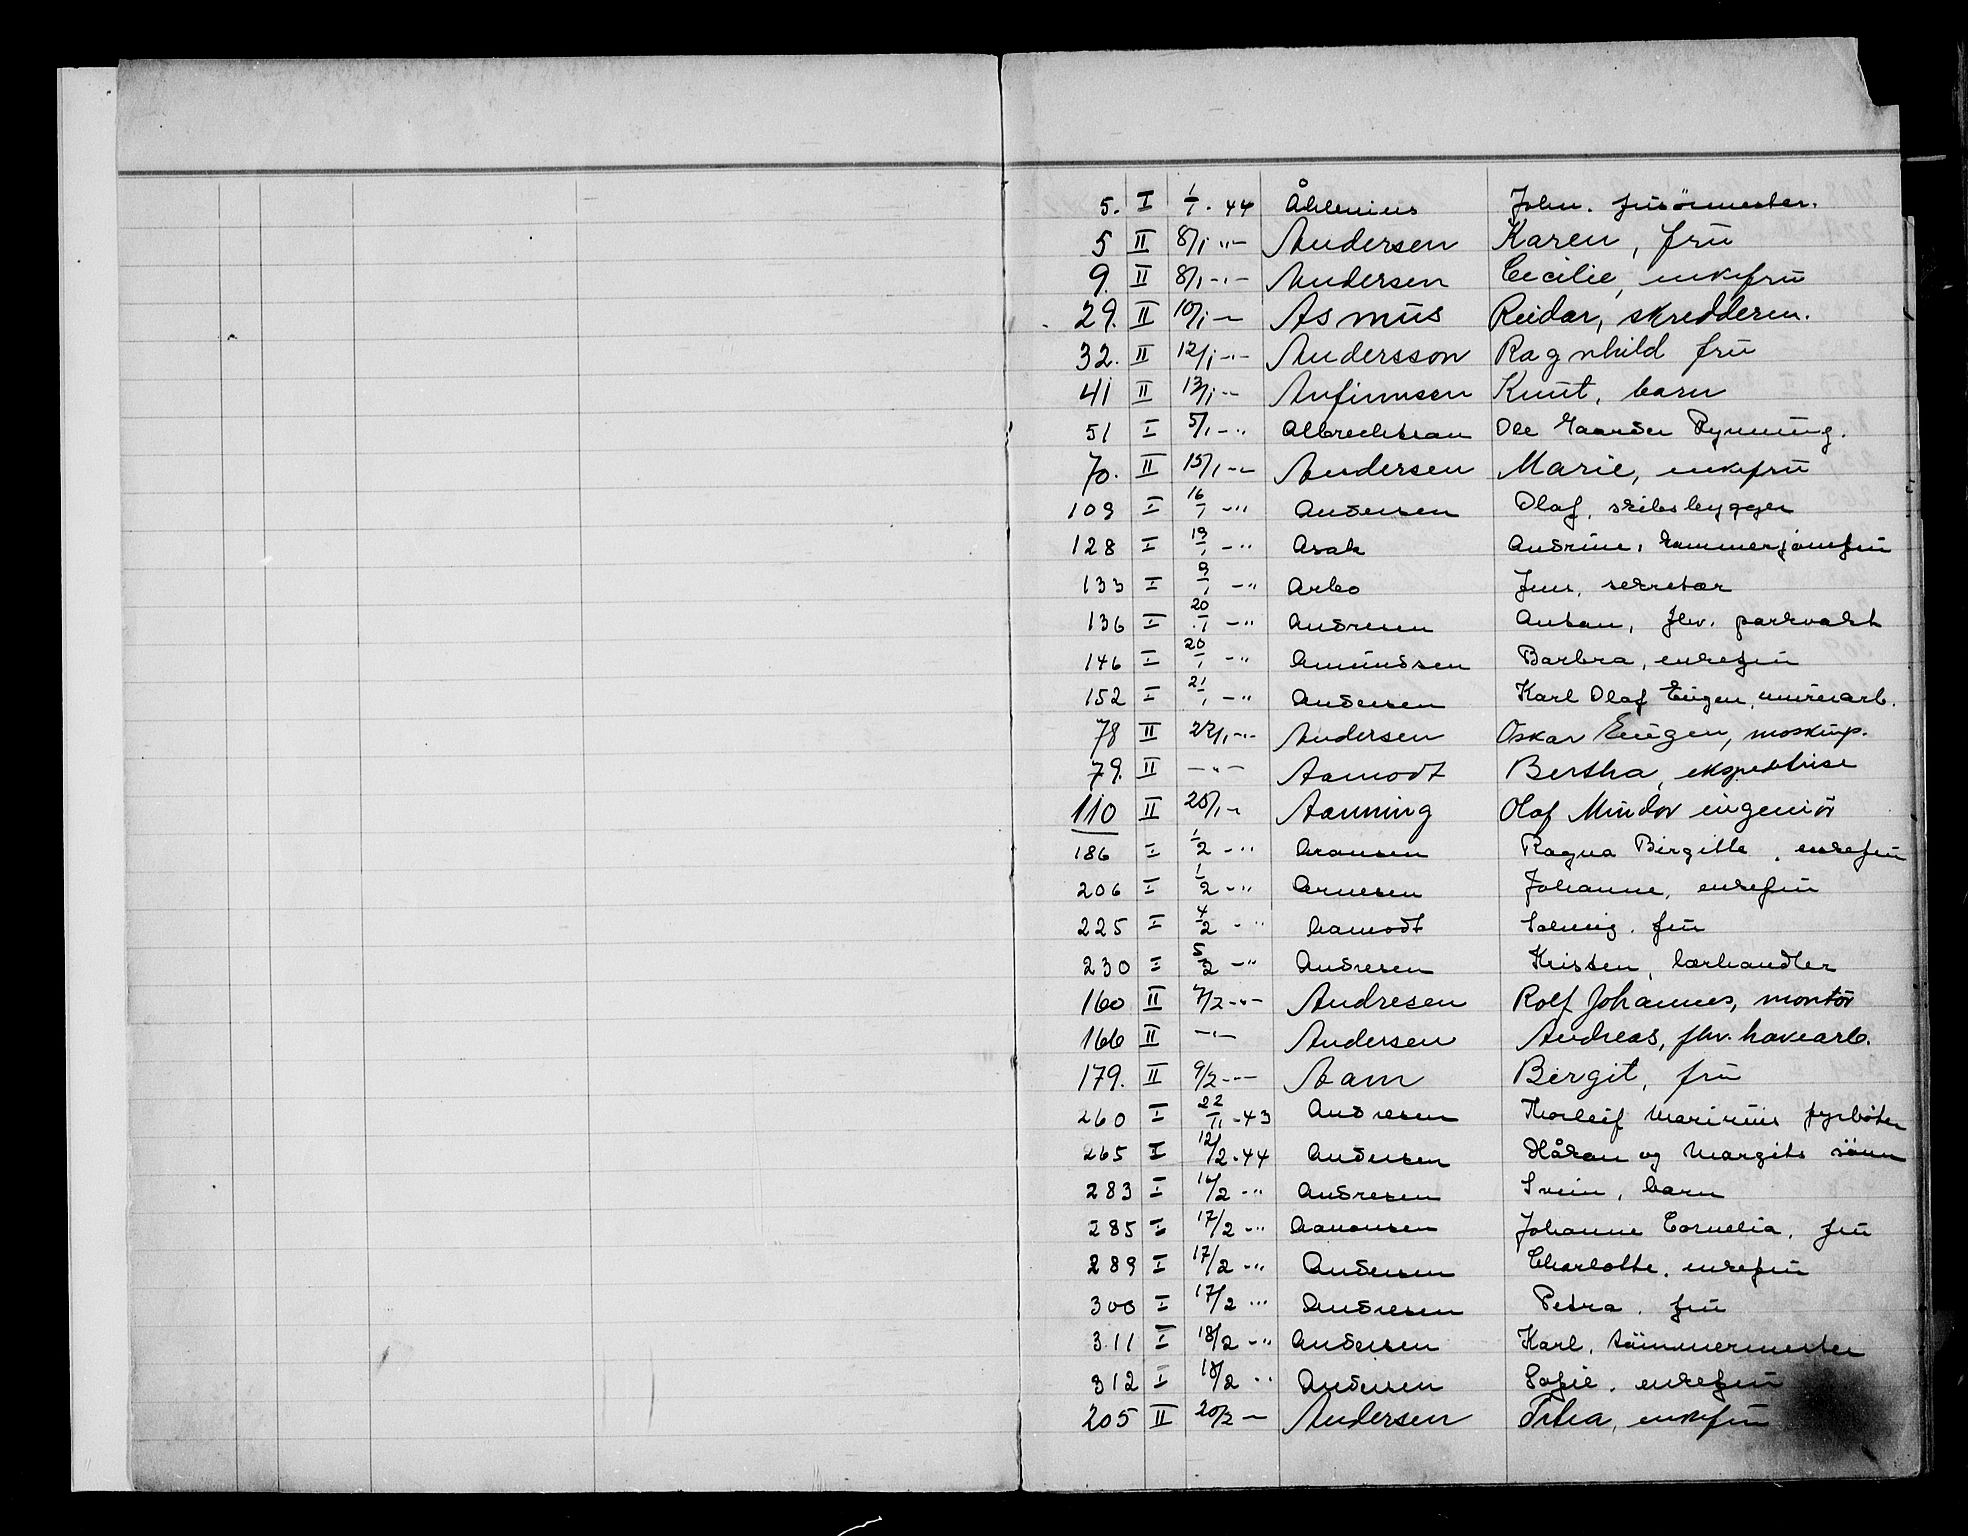 5. I 1/1 . 44 Åhlenius John. frisörmester.
5 II 8/1 -"- Andersen Karen, frü
9. II 8/1 -"- Andersen Cecilie, enkefrü
29. II 10/1 -"- Asmüs Reidar, skredderm.
32. II 12/1 -"- Andersson Ragnhild frü
41 II 13/1 -"- Anfinnsen Knüt, barn
51 I 5/1 -" Albrechtsen Ole Rynning.
70. II 15/1 -"- Andersen Marie, enkefrü
109 I 16/1 -" Andersen Olaf, skibsbygger
128 I 19/1 -" Asak Andrine,
133 I 9/1 -" Arbo Jens, sekretær
136 I 20/1 -" Andresen Anton, fhv. parkvakt
146 I 20/1 -" Amündsen Barbra, enkefrü
152 I 21/1 -" Andersen Karl Olaf Eügen, mürearb.
78 II 22/1 -"- Andersen Oskar Eügen, maskinp.
79. II -"- Aamodt Bertha, ekspeditrise
110 II 25/1 -"- Aanning Olaf Mindor ingeniör
186 I 1/2 -" Aronsen Ragna Birgitte, enkefrü
206 I 1/2 -" Arnesen Johanne, enkefrü
225 I 4/2 -" Aamodt Solveig. frü
230 I 5/2 -" Andresen Kristen, lærhandler
160 II 7/2 -"- Andresen Rolf Johannes, montör
166 II -"- Andersen Andreas, fhv. havearb.
179. II 9/2 -"- Aam Bergit, frü
260 I 22/11 -43 Andresen Thorleif Mariniüs fyrböter
265 I 12/2 . 44 Andersen Håkon og Margits sönn
283 I 16/2 -" Andresen Svein, barn
285 I 17/2 -" Aanonsen Johanne Cornelia, frü
289 I 17/2 -" Andersen Charlotte. enkefrü
300 I 17/2 -" Andresen Petra. frü
311 I 18/2 -" Andersen Karl, tömmermester
312 I 18/2 -" Andersen Sofie. enkefrü
205 II 20/2 -"- Andersen enkefrü